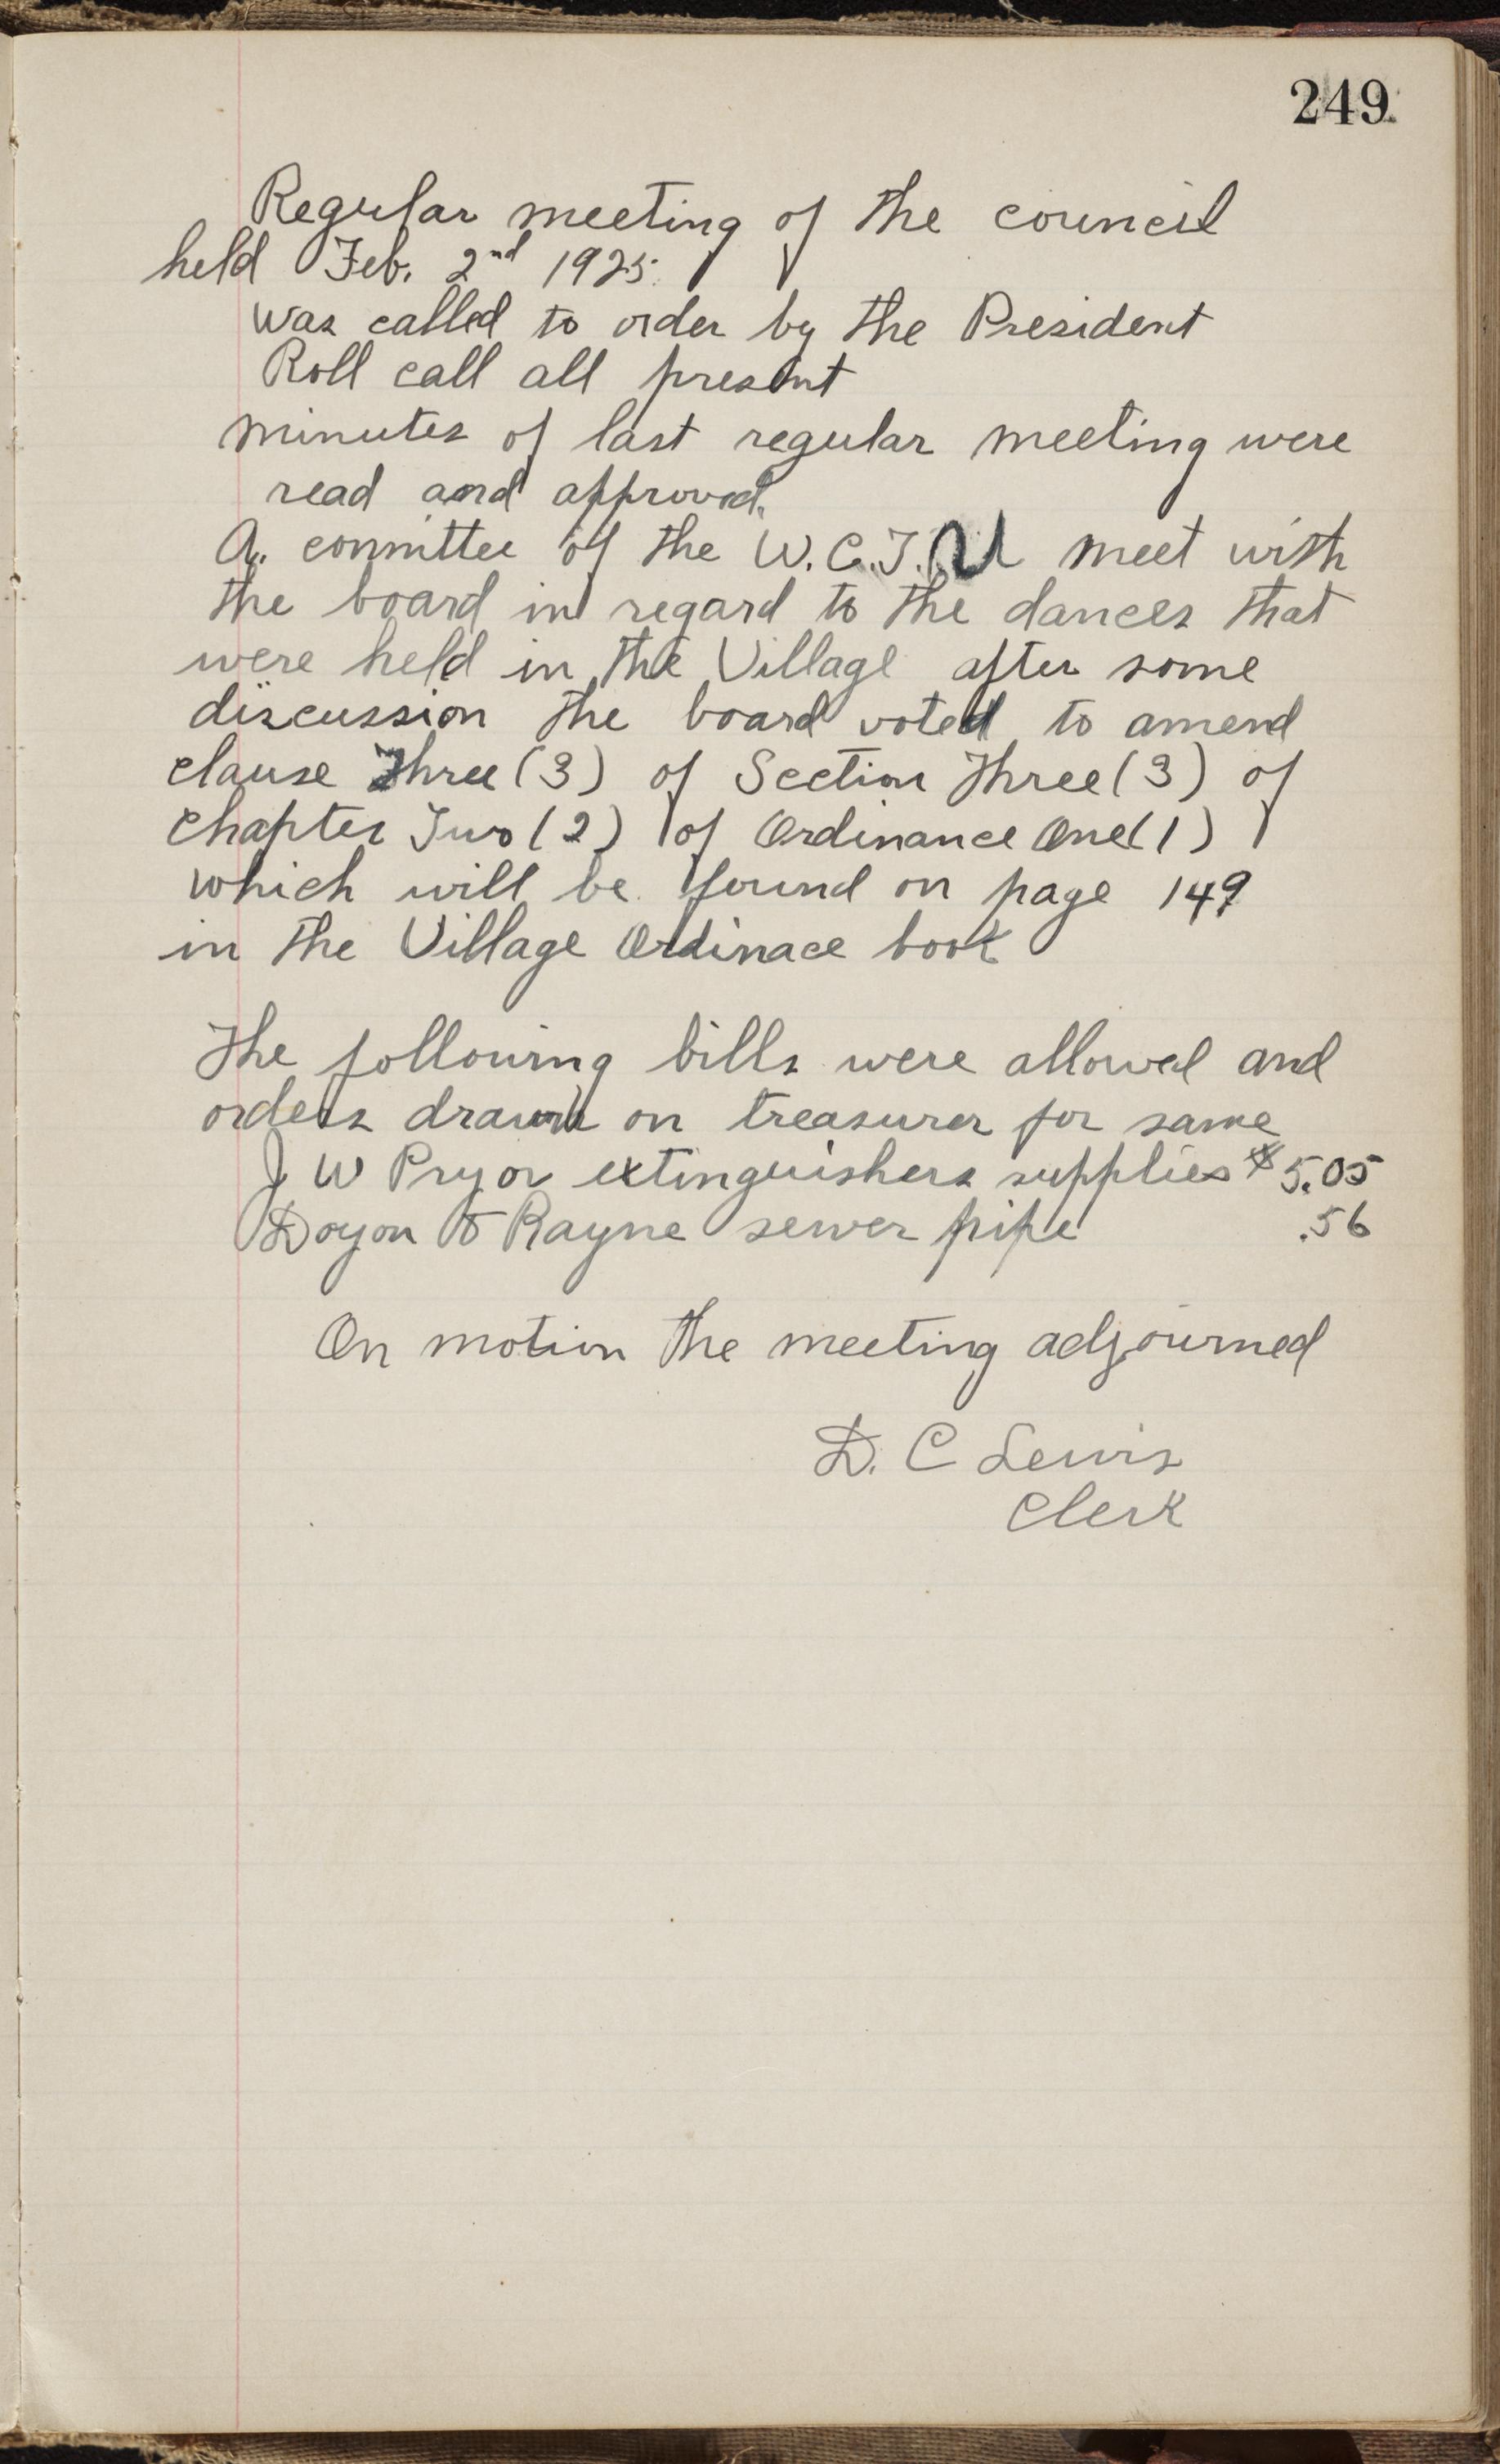 249
Regular meeting of the council
held Feb. 2nd 1925
was called to order by the President
Roll call all present
minutes of last regular meeting were
read and approved.
A. committee of the W.C.T.U meet with
the board in regard to the dances that
were held in the Village after some
discussion the board voted to amend
clause Three (3) of Section Three (3) of
chapter Two (2) of Ordinance One (1)
which will be found on page 149
in the Village Ordinace book
The following bills were allowed and
orders drawn on treasurer for same
J W Pryor extinguishers supplies $5.05
Doyon & Rayne sewer pipe .56
On motion the meeting adjourned
D. C Lewis
Clerk